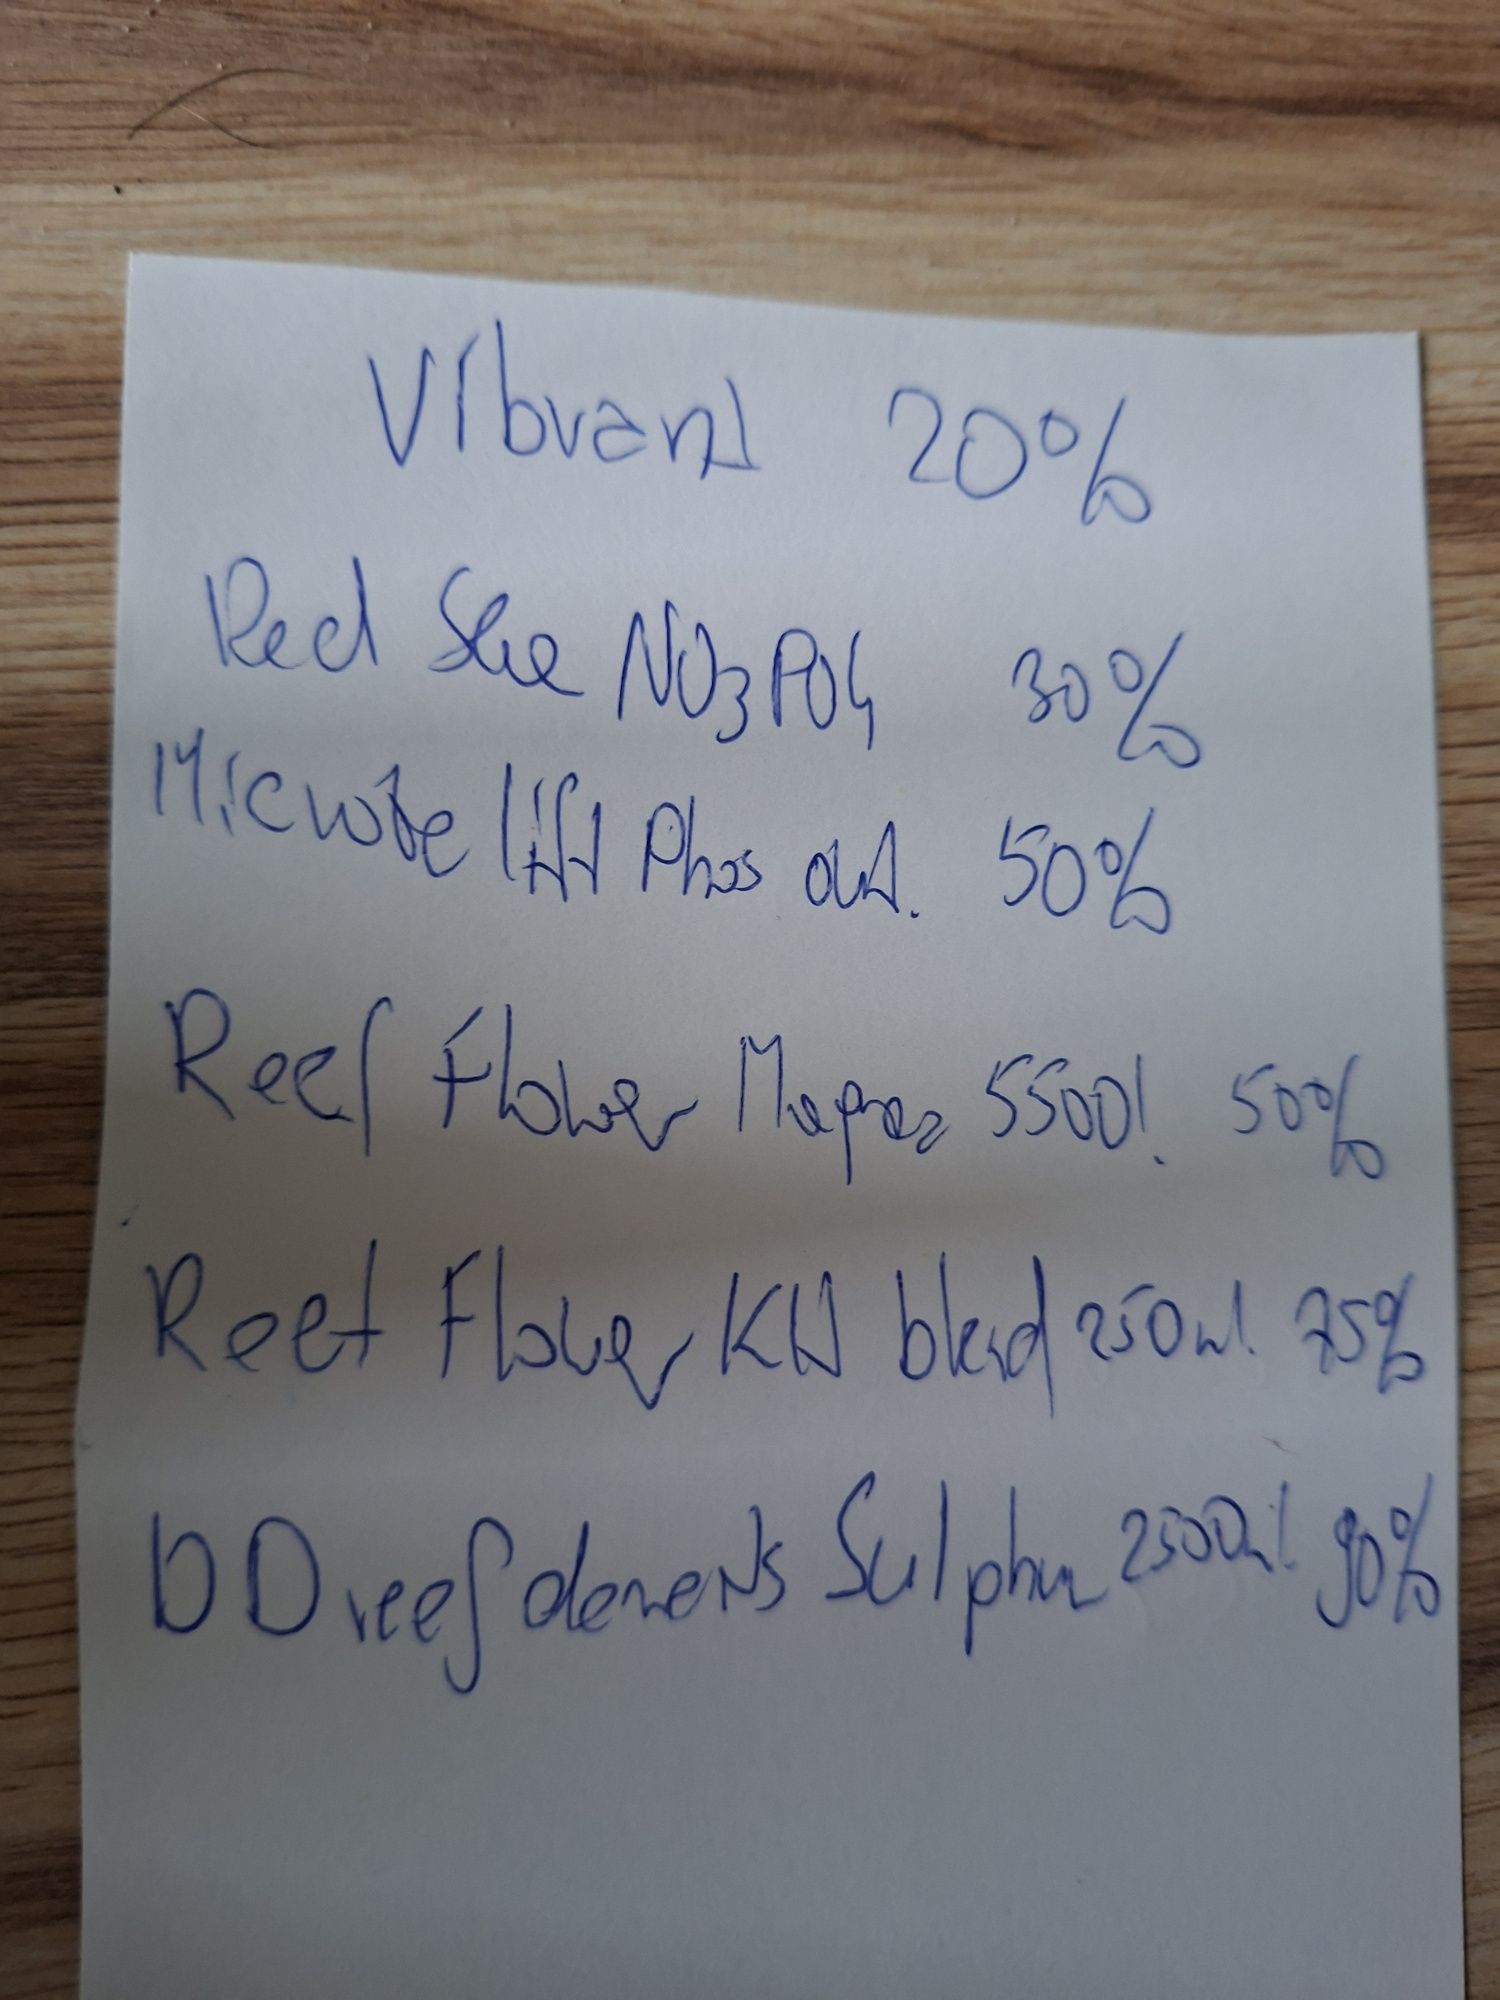 Vibrant 20%
Red Sea NO3PO4 30%
Microbe lift Phos out. 50%
Reef Flower 5500! 50%
Reef Flower KH blend 250ml 75%
DD reef elements Sulphur 2500ml 90%